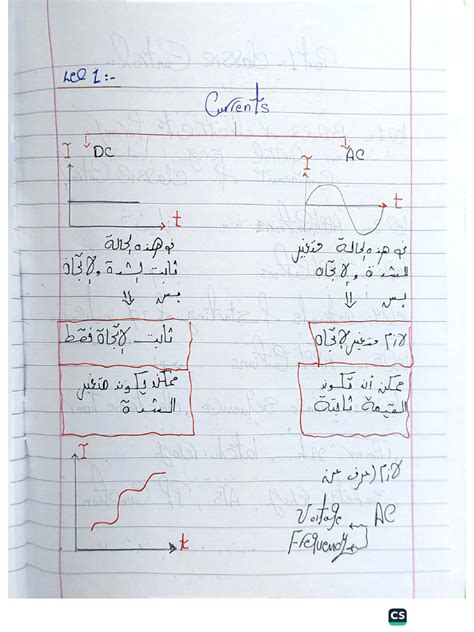 Lec 1:-
Currents
DC
AC
I
I
t
t
هو هذه الحالة
ثابت الشدة والإتجاة
بس
ثابت الإتجاة فقط
ممكن يكون متغير
الشدة
هو هذه الحالة متغير
الشدة والإتجاة
بس
لازم متغير الإتجاة
ممكن أن تكون
القيمة ثابتة
I
t
لازم اعرف عن
AC
Voltage
Frequency
CS